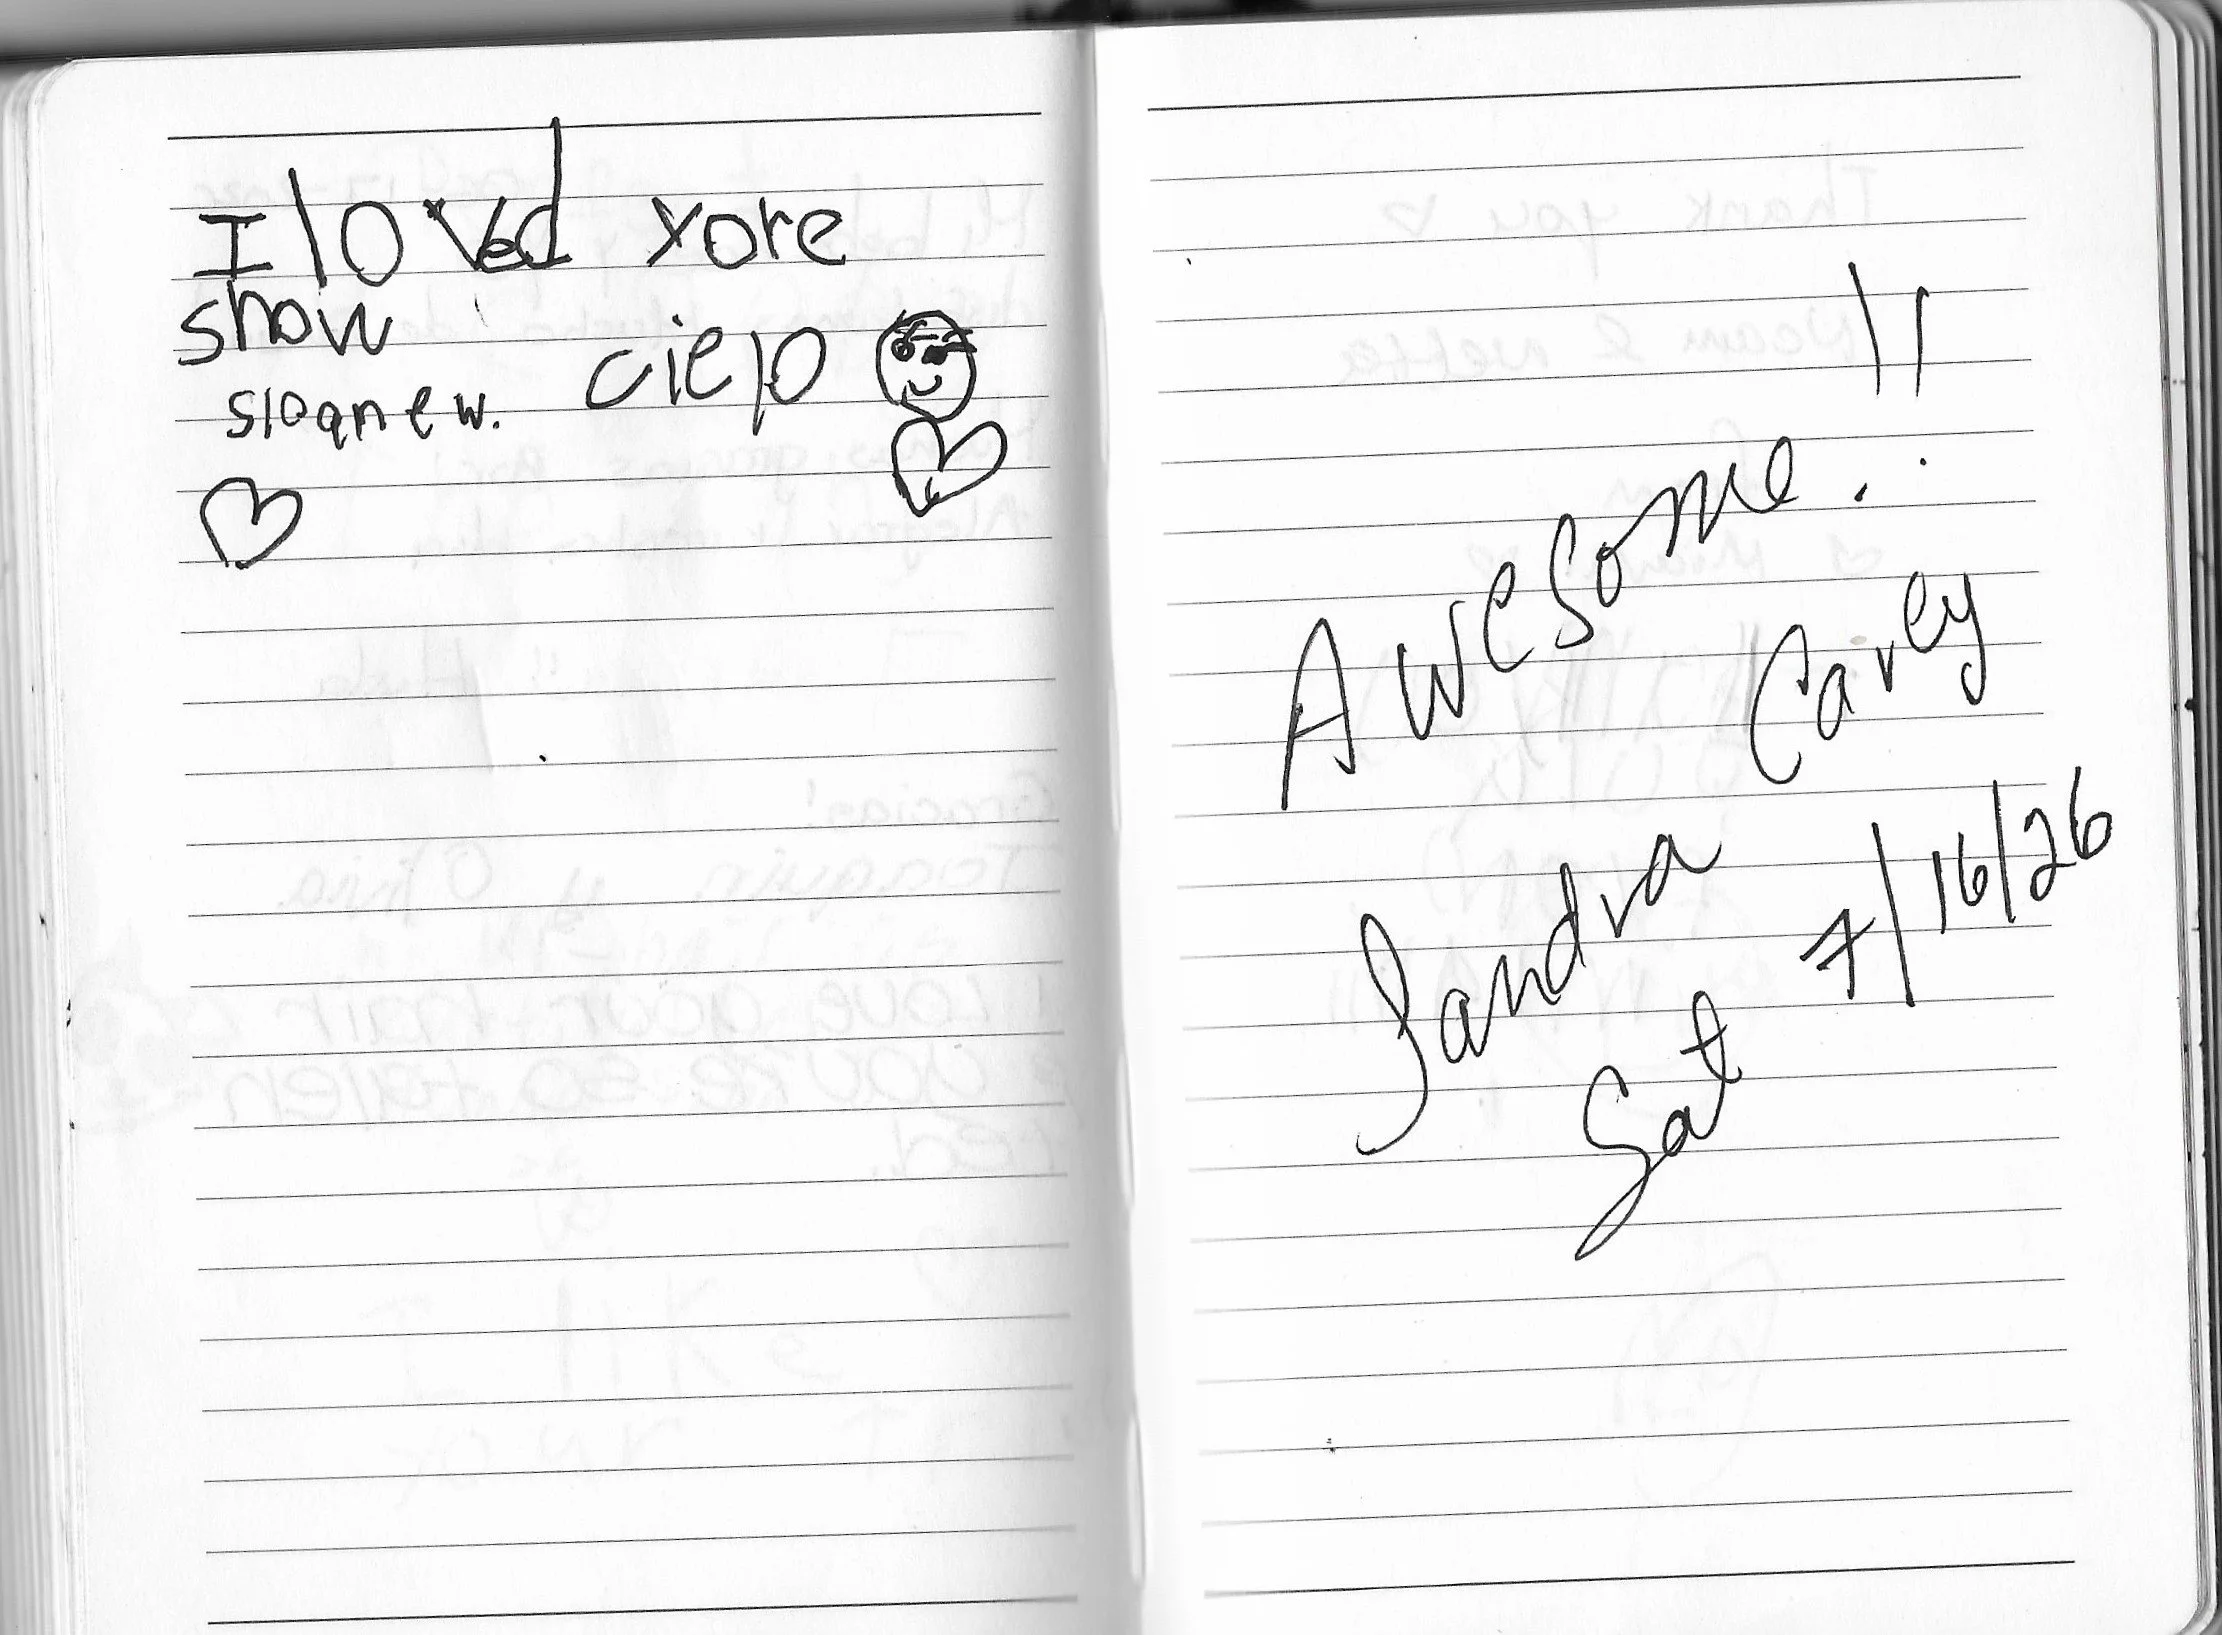 I loved yore
show
cielo
sloanew.
Awesome!!
Sandra Carey
Sat 7/16/26